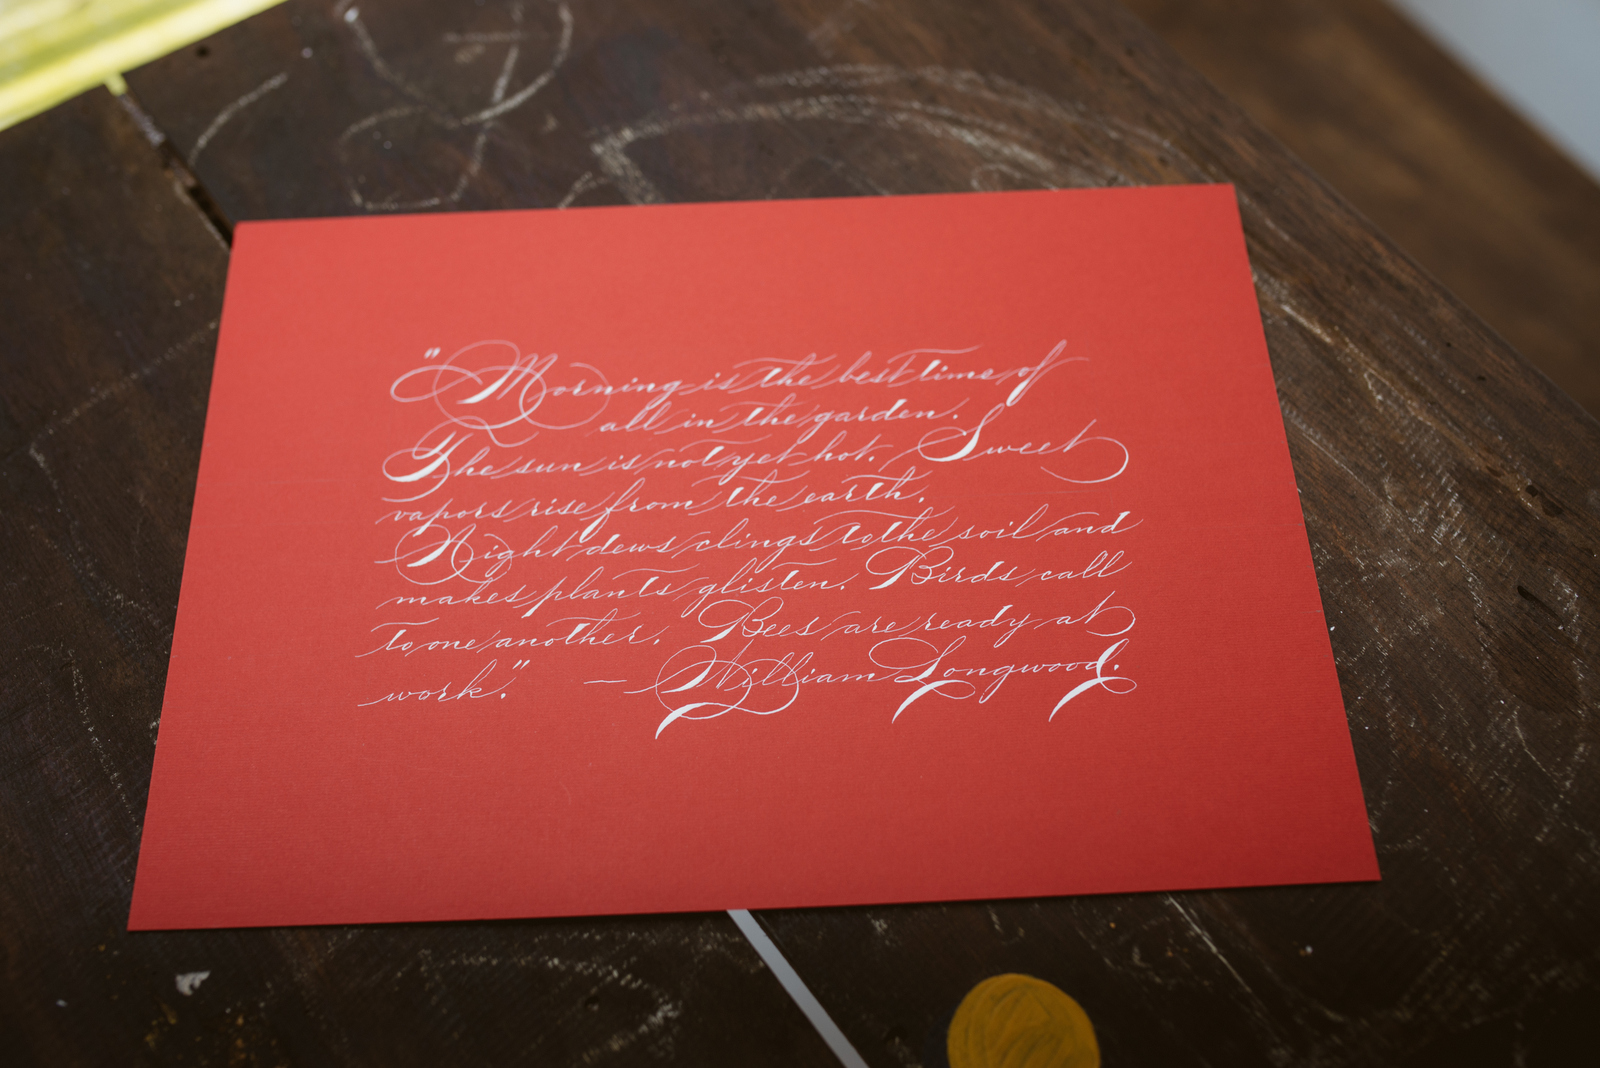 "Morning is the best time of
all in the garden.
The sun is not yet hot. Sweet
vapors rise from the earth.
Night dews clings to the soil and
makes plants glisten. Birds call
to one another. Bees are ready at
work." — William Longwood.